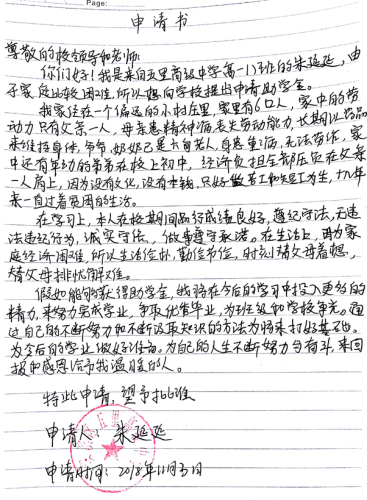 Page:
申请书
尊敬的校领导和老师:
你们好!我是来自五里高级中学高一13班的朱延延,由
于家庭比较困难,所以想向学校提出申请助学金。
我家住在一个偏远的小村庄里,家里有6口人,家中的劳
动力只有父亲一人,母亲患精神病,丧失劳动能力,长期以药品
来维持身体,爷爷、奶奶已是六旬老人,身患重病,无法劳作,家
中还有年幼的弟弟在校上初中,经济负担全部压在父亲
一人肩上,因为没有文化,没有本钱,只好做苦工和短工为生,十几年
来一直过着贫困的生活。
在学习上,本人在校期间品行成绩良好,遵纪守法,无违
法违纪行为,诚实守信,做事遵守承诺。在生活上,因为家
庭经济困难,所以生活俭朴,勤俭节俭,时刻替父母着想,
替父母排忧解难。
假如能够获得助学金,我将在今后的学习中投入更多的
精力,来努力完成学业,争取优等毕业,为班级和学校争光。通
过自己的不断努力和不断汲取知识的方法为将来打好基础。
为今后的学业做好准备。为自己的人生不断努力与奋斗,来回
报和感恩给予我温暖的人。
特此申请,望予批准
申请人:朱延延
申请时间:2018年11月5日